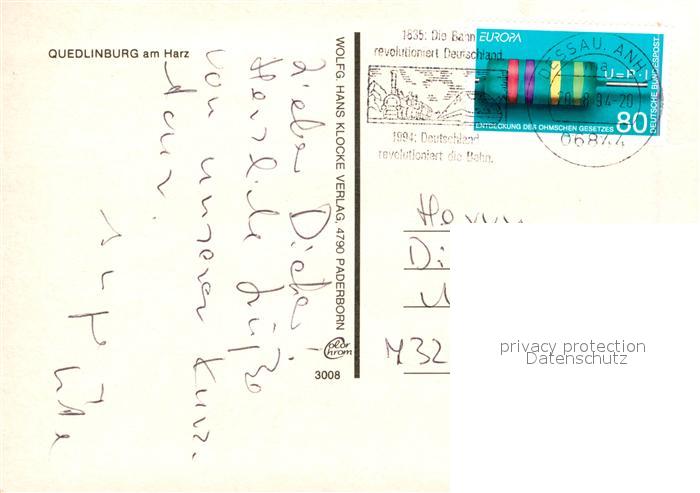 QUEDLINBURG am Harz
Lieber Dieter!
Herzliche Grüße
von unserer Kurz-
WOLFG. HANS KLOCKE VERLAG, 4790 PADERBORN
color chrom
3008
1835: Die Bahn
revolutioniert Deutschland.
1994: Deutschland
revolutioniert die Bahn.
EUROPA
U=R·I
ENTDECKUNG DES OHMSCHEN GESETZES
80
DEUTSCHE BUNDESPOST
DESSAU, ANH
a
8.94-20
06844
Di
privacy protection
Datenschutz